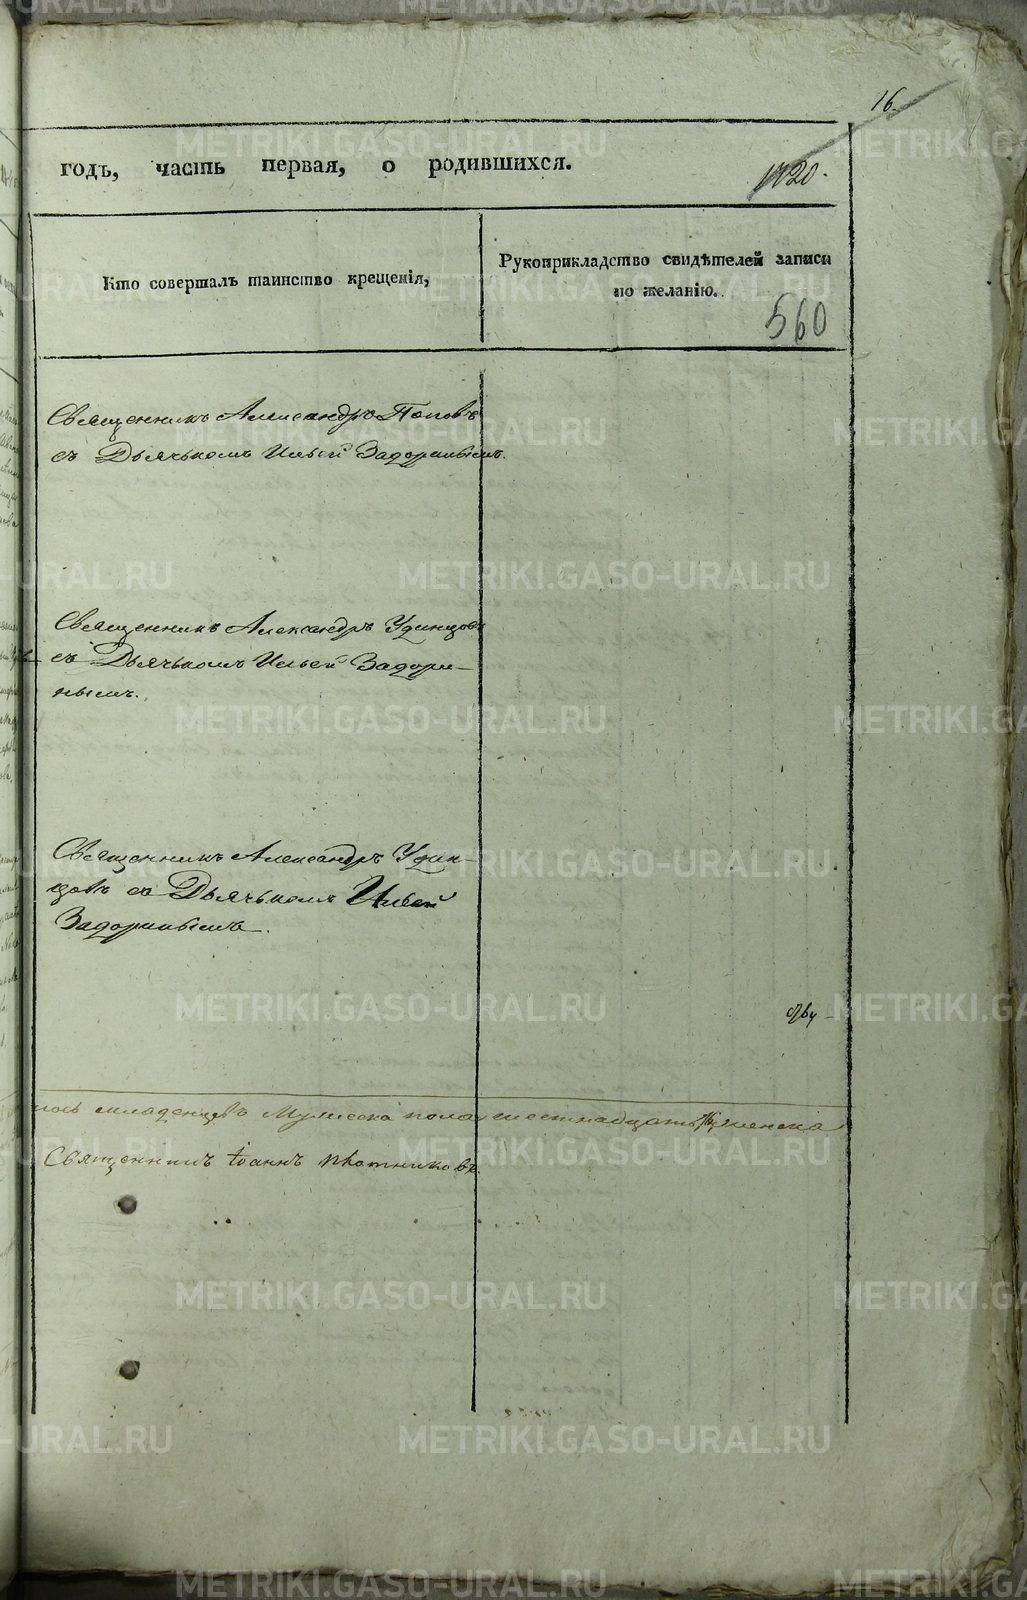 16.
годъ, часть первая, о родившихся.
1120.
Кто совершалъ таинство крещенія,
Рукоприкладство свидѣтелей записи
по желанію.
560
Священникъ Александръ Поповъ
съ Дьячькомъ Ильей Задоринымъ.
Священникъ Александръ Удинцовъ
съ Дьячькомъ Ильей Задори-
нымъ.
Священникъ Александръ Удин-
цовъ съ Дьячькомъ Ильей
Задоринымъ.
младенцевъ Мужеска пола шестнадцать, женска
Священникъ Іоаннъ Плотниковъ.
METRIKI.GASO-URAL.RU